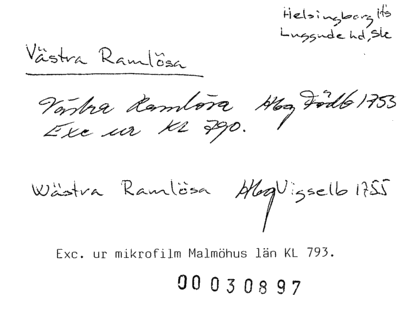 Helsingborg Hs
Luggude hd, Sk
Västra Ramlösa
Västra Ramlösa Hbg Födb 1753
Exc ur KL 790.
Wästra Ramlösa Hbg Vigselb 1755
Exc. ur mikrofilm Malmöhus län KL 793.
00030897